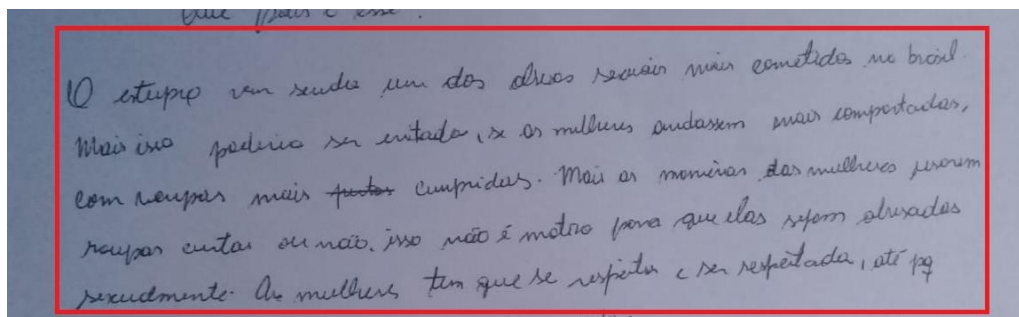 que pais é esse.
O estupro vem sendo um dos abusos sexuais mais cometidos no brasil.
Mais isso poderia ser evitado, se as mulheres andassem mais comportadas,
com roupas mais justas cumpridas. Mais as das mulheres usarem
roupas curtas ou não, isso não é motivo para que elas sejam abusadas
sexualmente. As mulheres tem que se respeitar e ser respeitada, até pq